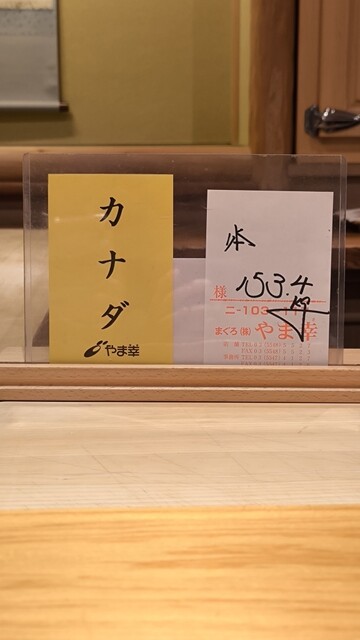 カナダ
やま幸
本
153.4
kg
様
ニ-103
まぐろ(株)やま幸